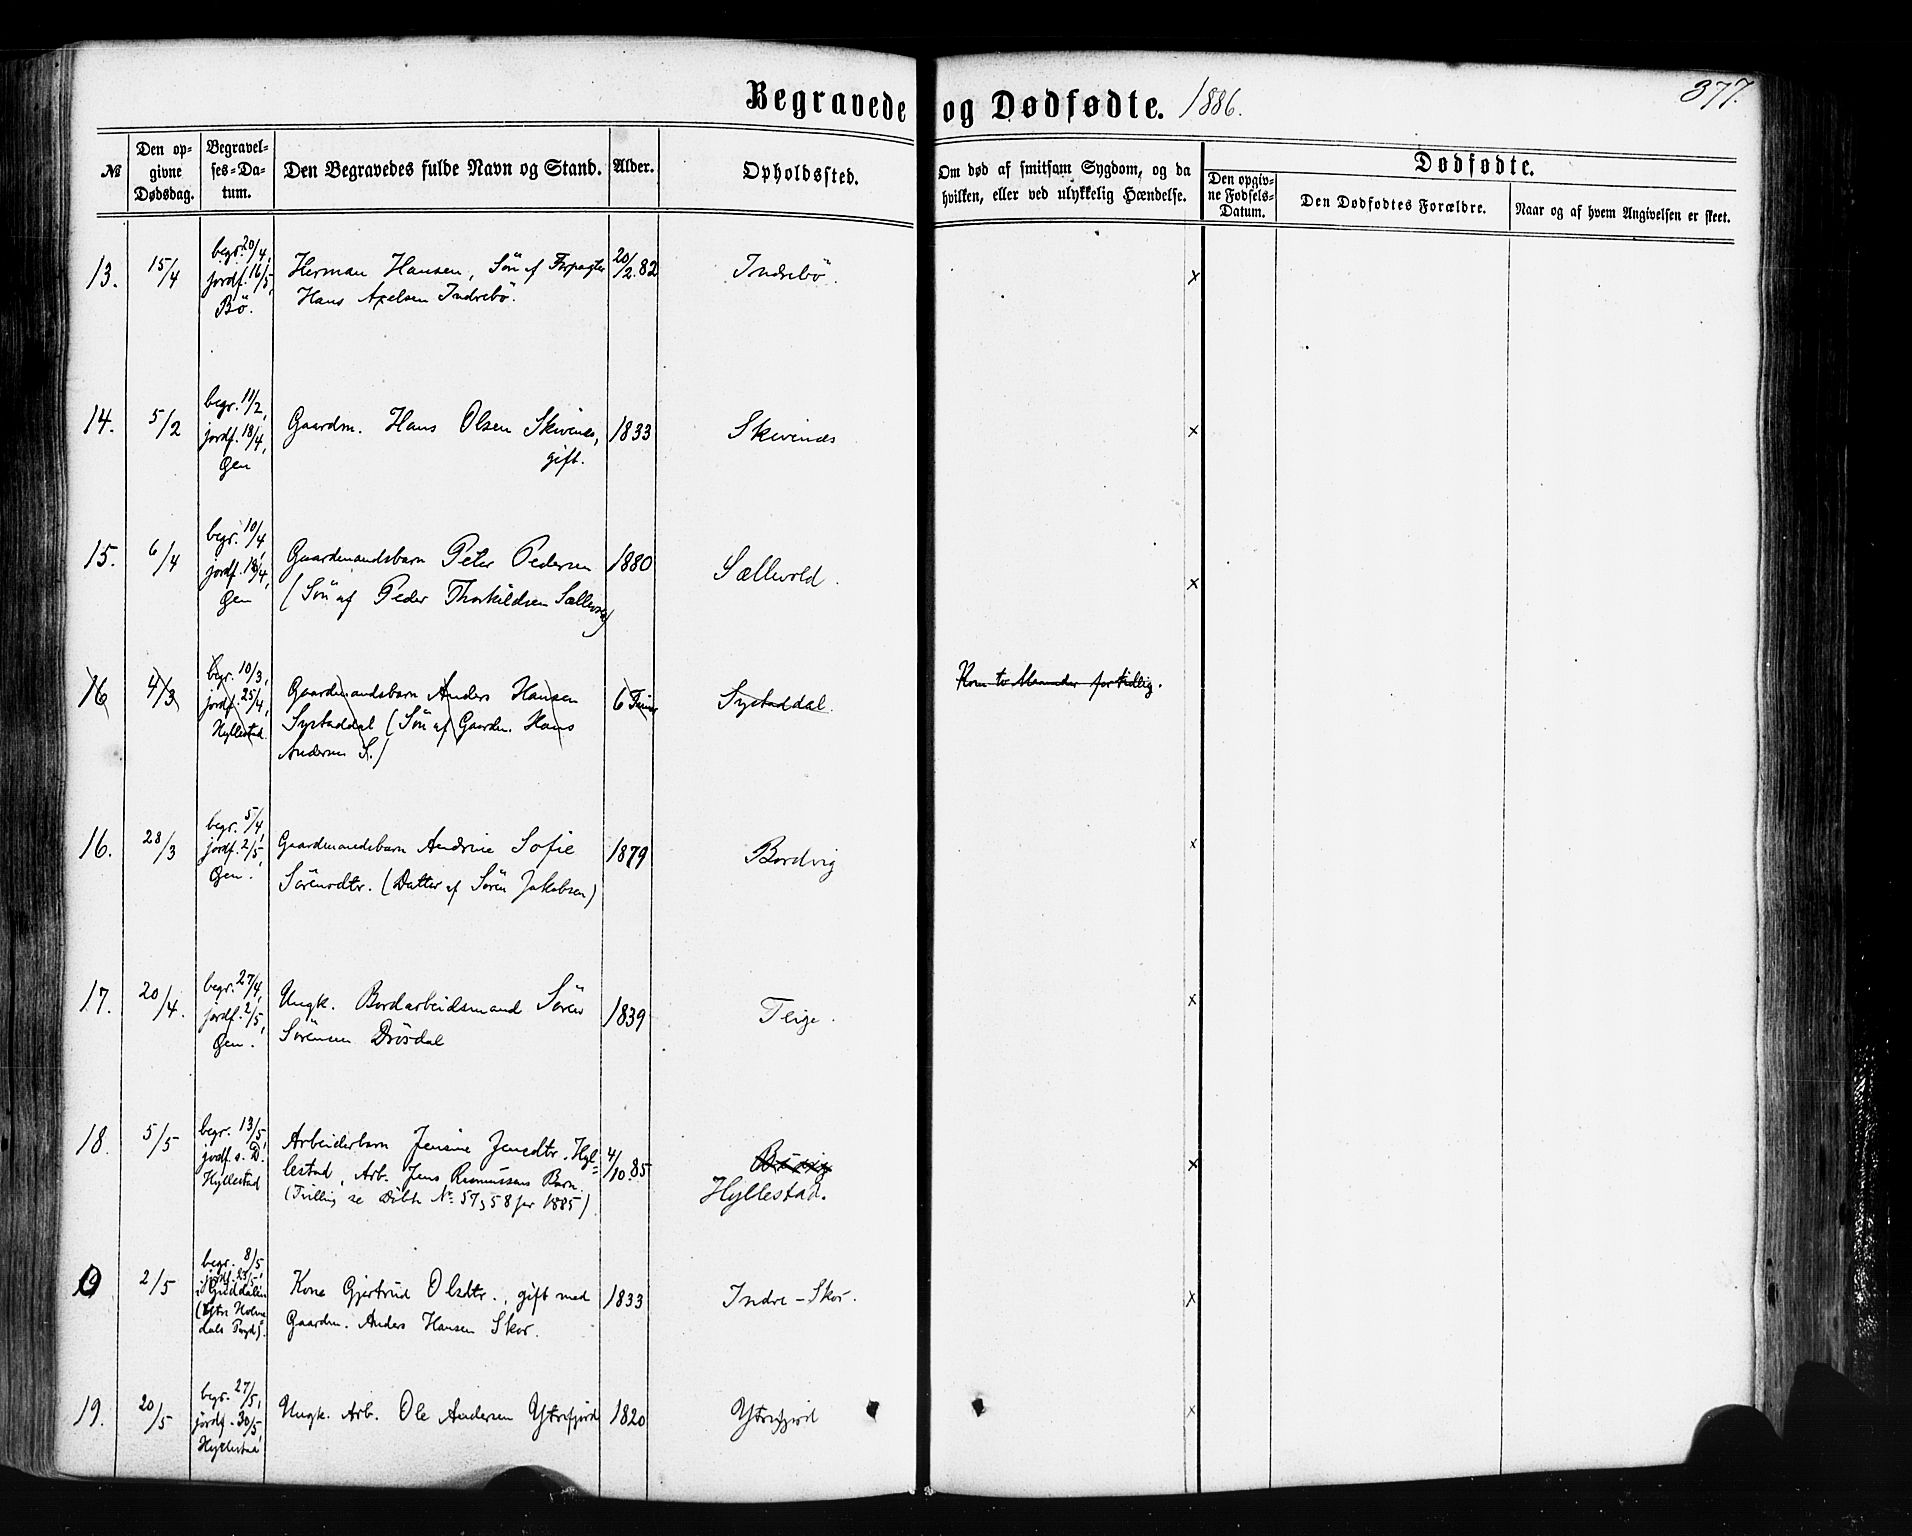 Begravede og Dødfødte. 1886.
377.
№
Den opgivne Dødsdag.
Begravelses-Datum.
Den Begravedes fulde Navn og Stand.
Alder.
Opholdssted.
Om død af smitsom Sygdom, og da
hvilken, eller ved ulykkelig Hændelse.
Dødfødte.
Den opgivne Fødsels-Datum.
Den Dødfødtes Forældre.
Naar og af hvem Angivelsen er skeet.
13.
15/4
begr. 20/4,
jordf. 16/5,
Bö.
Herman Hansen, Sön af Forpagter
Hans Axelsen Indrebö.
20/2.82
Indrebö.
x
14.
5/2
begr. 11/2,
jordf. 18/4,
Öen
Gaardm. Hans Olsen Skivenes,
gift.
1833
Skivenæs
x
15.
6/4
begr. 10/4,
jordf. 18/4,
Öen
Gaardmandsbarn Peter Pedersen
(Sön af Peder Thorkildsen Sællevold)
1880
Sællevold.
x
16
4/3
begr. 10/3,
jordf. 25/4,
Hyllestad.
Gaardmandsbarn Anders Hansen
Systaddal (Sön af Gaardm. Hans
Andersen S.)
6 Timer
Systaddal.
Kom to Maaneder for tidlig.
16.
28/3
begr. 5/4,
jordf. 2/5,
Öen.
Gaardmandsbarn Andrine Sofie
Sörensdtr. (Datter af Sören Jakobsen)
1879
Bordvig
x
17.
20/4.
begr. 27/4,
jordf. 2/5,
Öen.
Ungk. Bordarbeidsmand Sören
Sörensen Drösdal
1839
Teige.
x
18.
5/5
begr. 13/5,
jordf. s. D.
Hyllestad
Arbeiderbarn Jensine Jensdtr. Hyl=
lestad, Arb. Jens Rasmussens Barn.
(Tvilling, se Döbte № 57 & 58 for 1885)
4/10.85
Hyllestad.
x
19
2/5
begr. 8/5,
jordf. 23/5,
Guddalen
(Ytre Holme
dals Prgd).
Kone Gjertrud Olsdtr., gift med
Gaardm. Anders Hansen Skor.
1833
Indre-Skor.
x
19.
20/5
begr. 27/5,
jordf. 30/5,
Hyllestad
Ungk. Arb. Ole Andersen Ytrefjord
1820
Ytrefjord
x